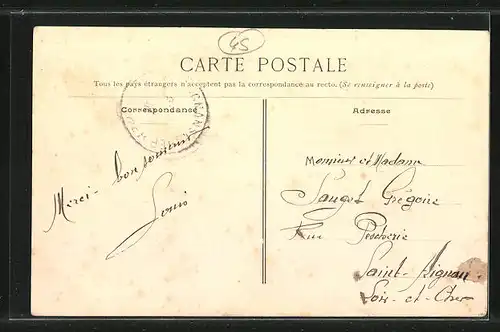 45
CARTE POSTALE
Tous les pays étrangers n'acceptent pas la correspondance au recto. (Se renseigner à la poste)
Correspondance
Merci - bon souvenir
Louis
Adresse
Monsieur et Madame
Sauget Grégoire
Rue
Saint-Aignan
Loir-et-Cher